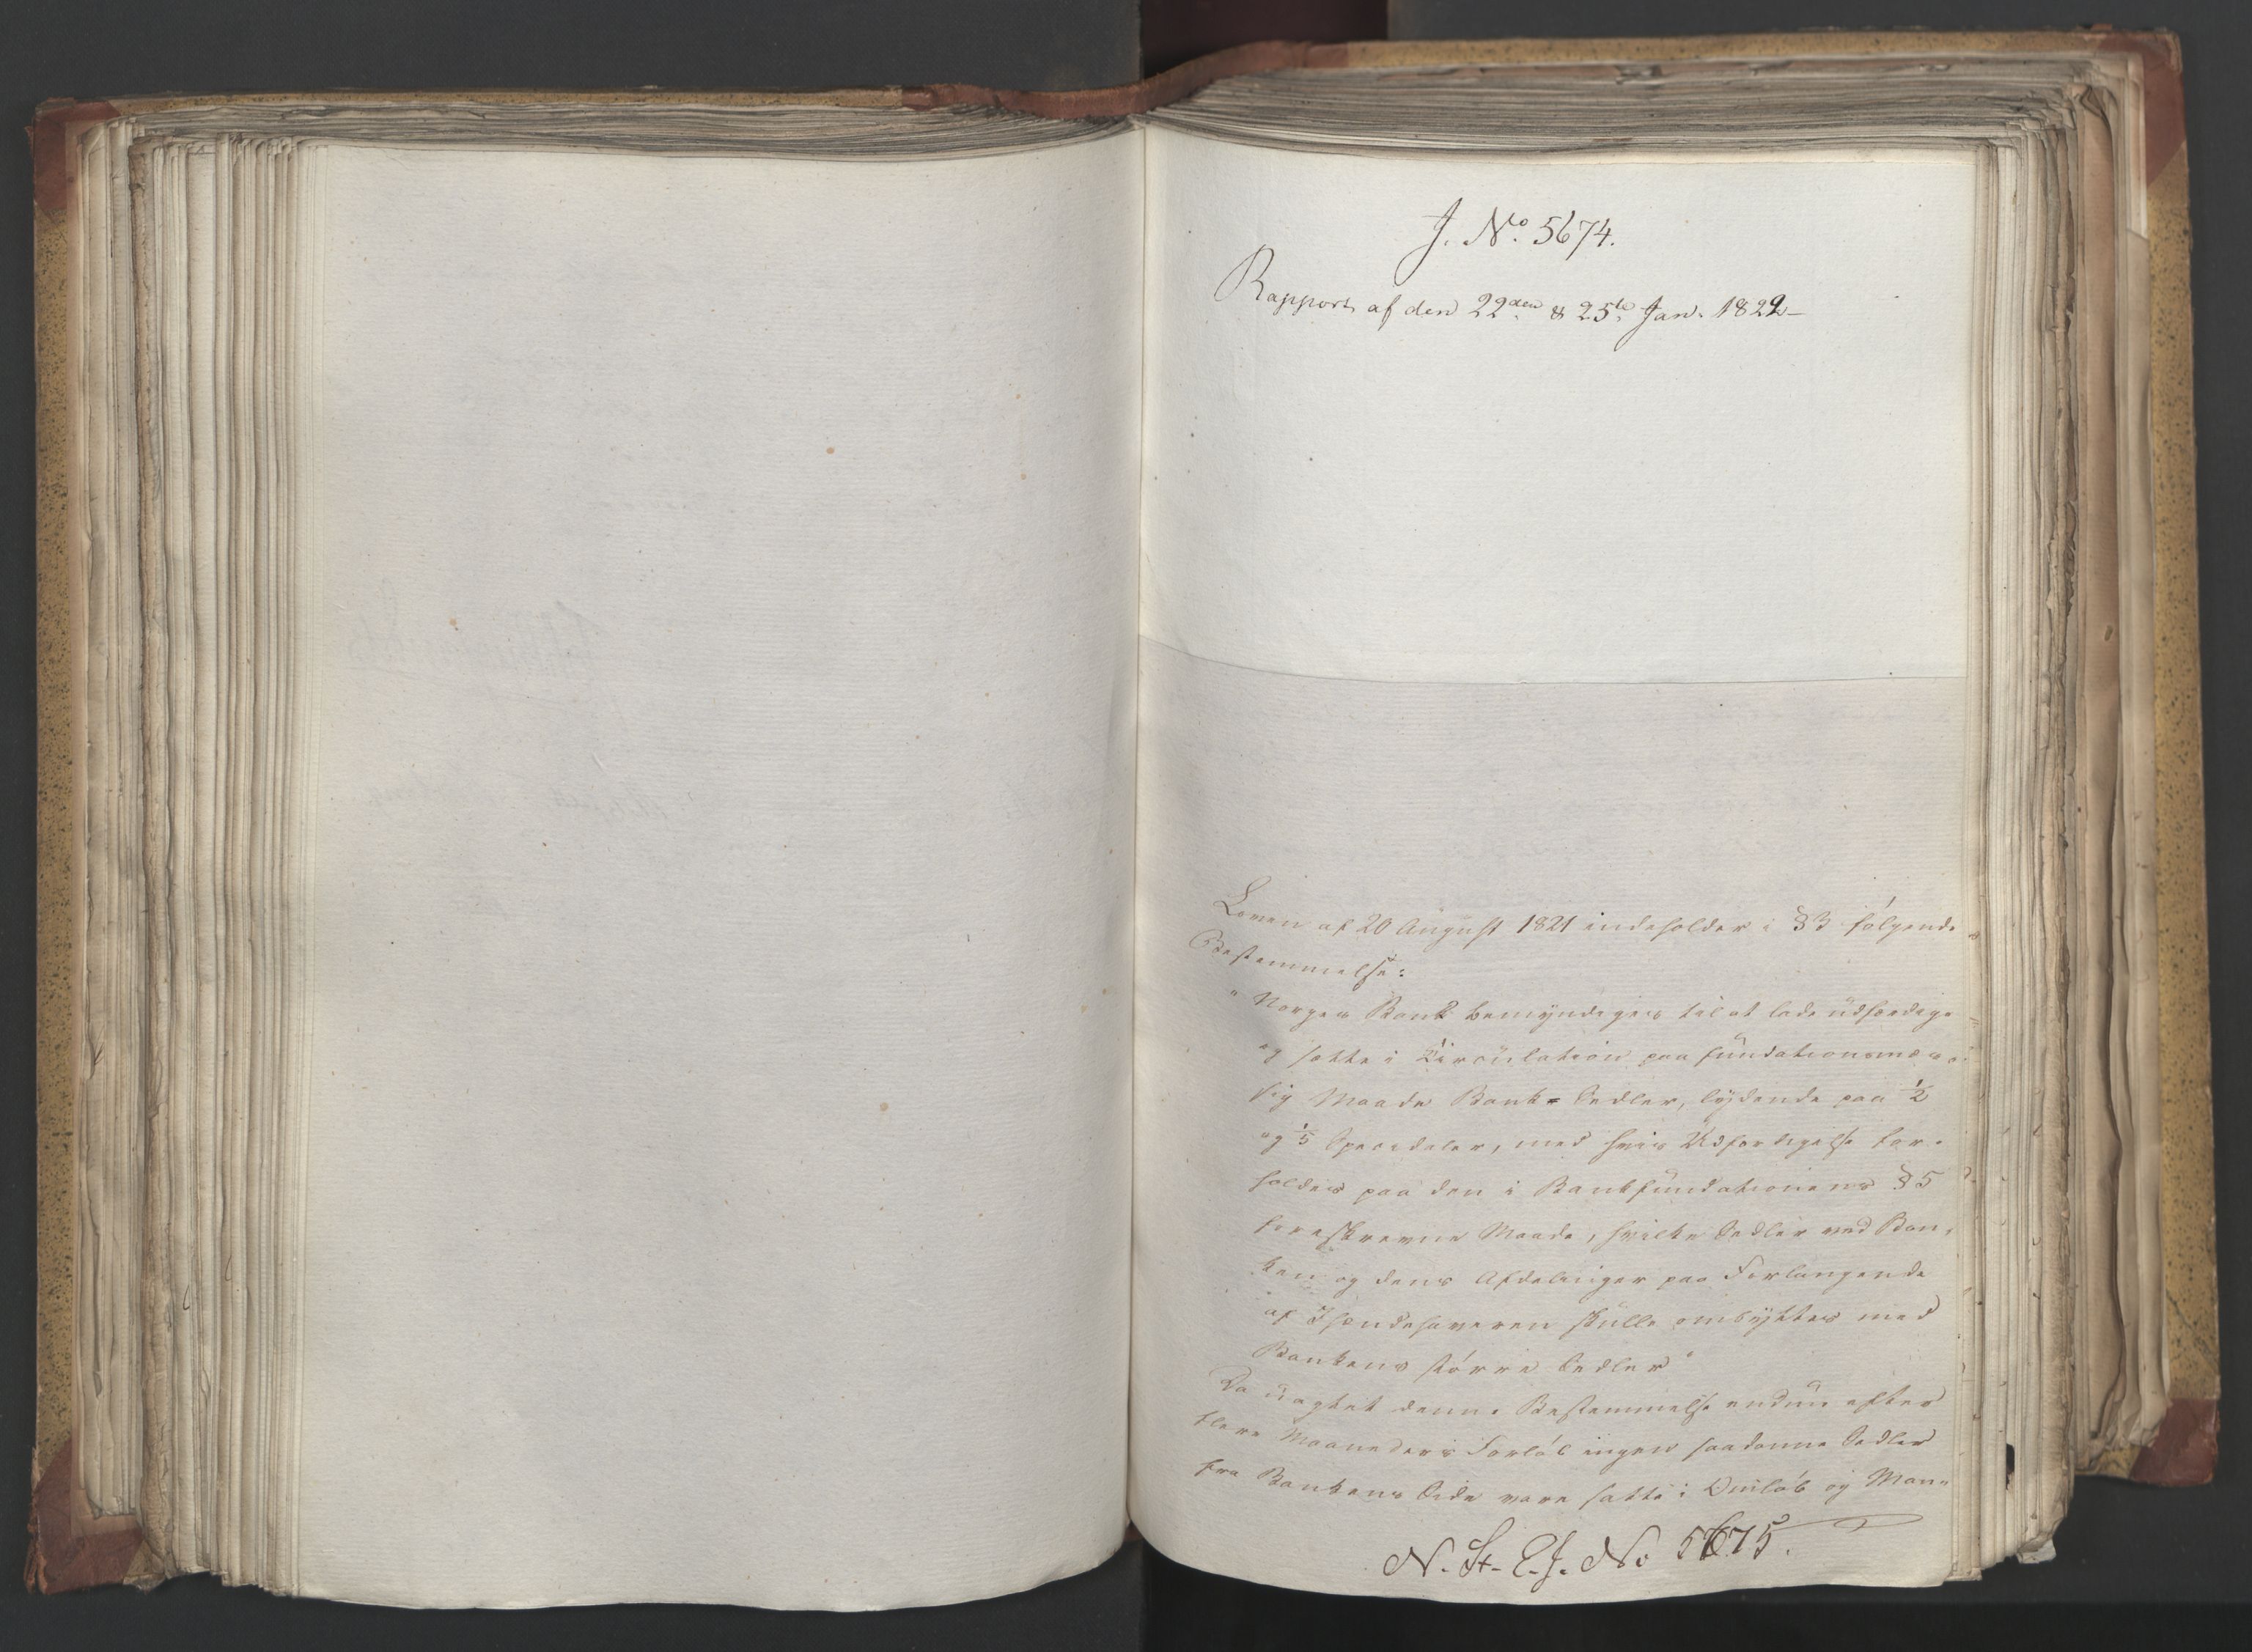 J. No. 5674.
Rapport af den 22den & 25te Jan. 1822
Loven af 20 August 1821 indeholder i §3 følgende
Bestemmelse:
"Norges Bank bemyndiges til at lade udfærdige
og sætte i Circulation paa fundationsmæs-
sig Maade Bank-Sedler, lydende paa 1/2
og 1/5 Speciedaler, med hvis Udfærdigelse for-
holdes paa den i Bankfundationens §5
foreskrevne Maade, hvilke Sedler ved Ban-
ken og dens Afdelinger paa Forlangende
af Ihændehaveren skulle ombyttes med
Bankens større Sedler"
Da uagtet denne Bestemmelse endnu efter
flere Maaneders Forløb ingen saadanne Sedler
fra Bankens Side vare satte i Omløb og Man-
N. St. E. J. No 5675.